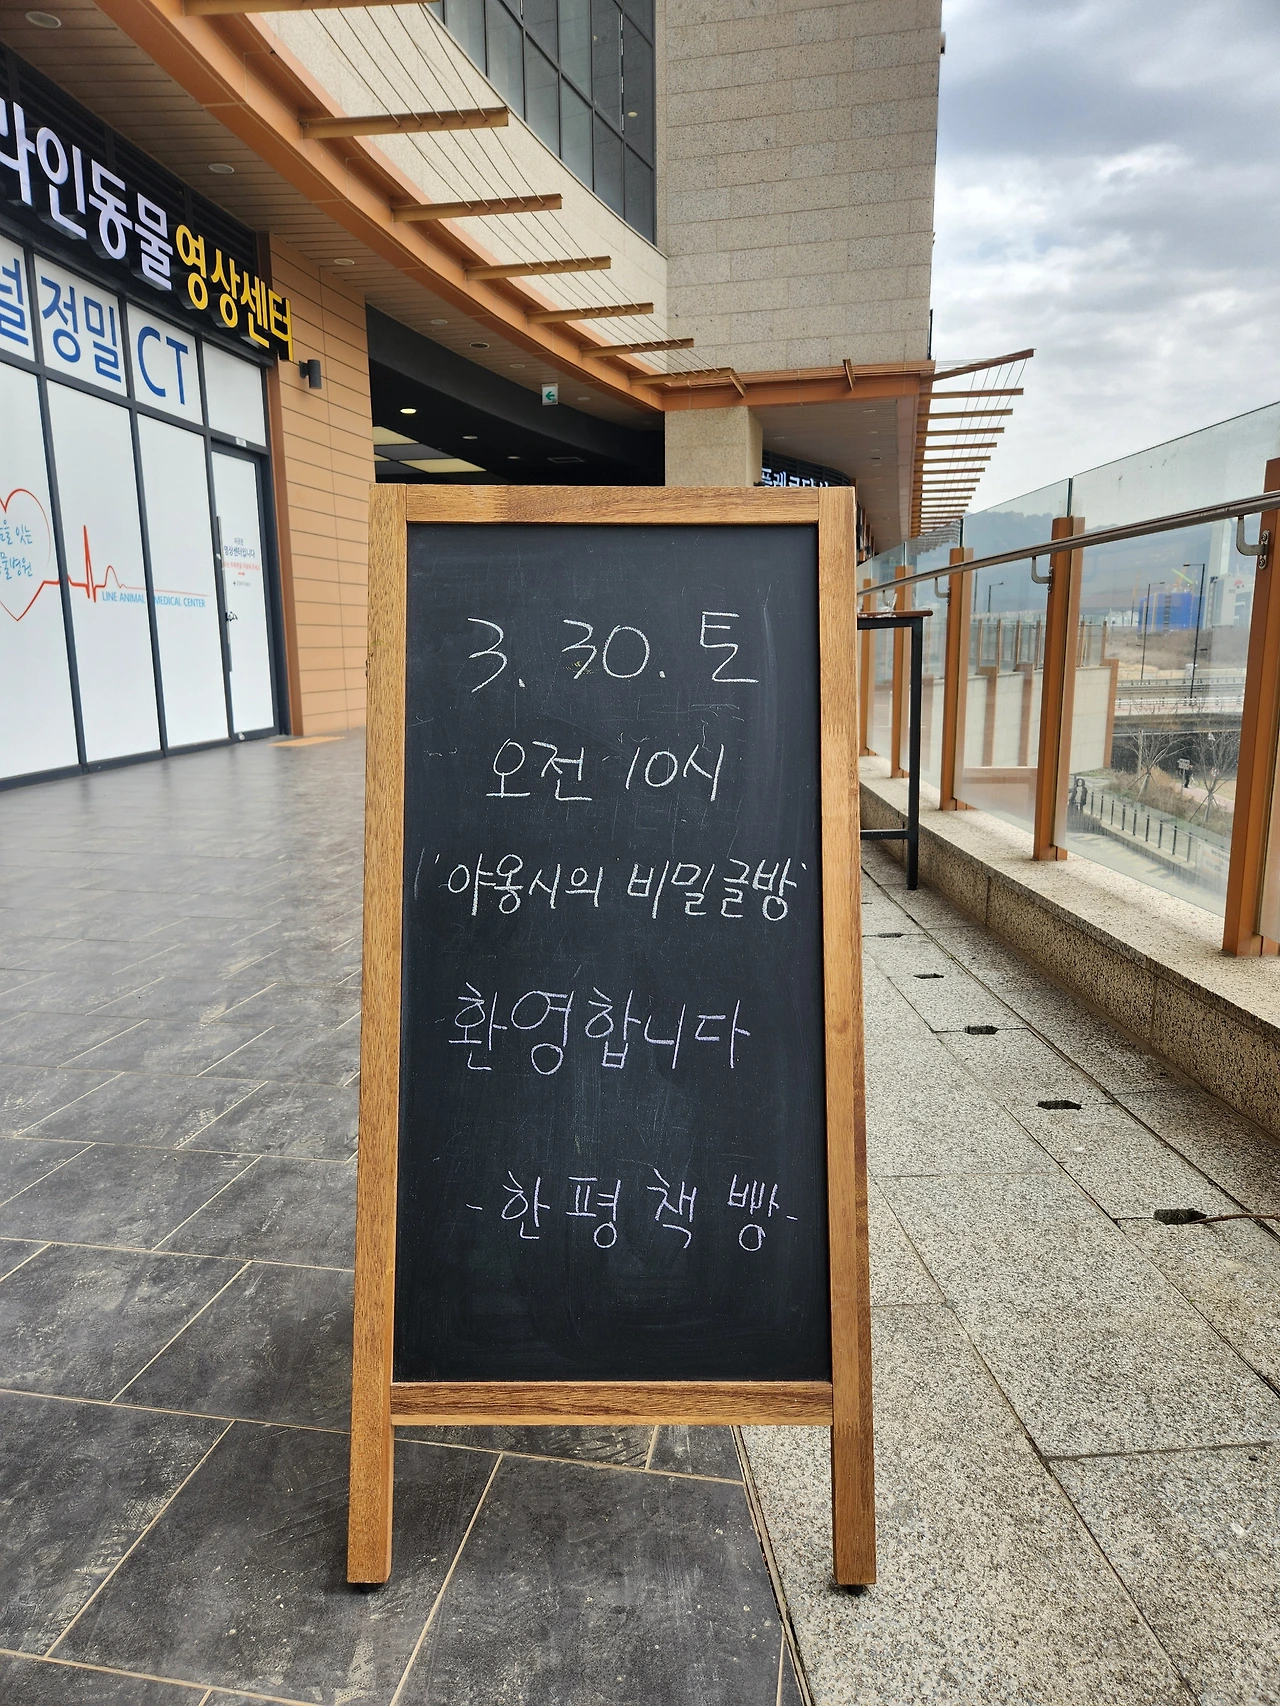 라인동물영상센터
널정밀 CT
LINE ANIMAL MEDICAL CENTER
영상센터입니다
3. 30. 토
오전 10시
'야옹시의 비밀글방'
환영합니다
- 한 평 책 빵 -